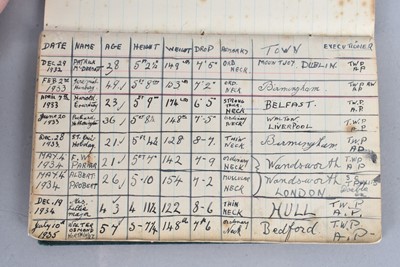 DATE NAME AGE HEIGHT WEIGHT DROP REMARKS TOWN EXECUTIONER
DEC 29 1932 PATRICK McDERMOTT 28 5" 2½ 149 LB 7' 5" ORD NECK. MOUNTJOY. DUBLIN. T.W.P A.P.
FEB 2ND 1933 49 5" 8 7' 2" ORD. NECK. Birmingham T.W.P
APRIL 7TH 1933 Harold Courtney 23 5" 9 6' 5" STRONG NECK BELFAST. T.W.P. A.P.
June 20 1933 Richard 36 5" 8½ 148 7-5 ORD. NECK WALTON. LIVERPOOL T.W.P. A.P.
DEC. 28 1933 Holiday 21 5" 4½ 128 8-7. THIN NECK Birmingham T.W.P A.P.
MAY 4 1934 F. W. PARKER 21 5" 7" 142 7-9 Ordinary NECK Wandsworth T.W.P A.P.
MAY 4 1934 ALBERT PROBERT 26 5-10 154 7-2 MUSCULAR NECK Wandsworth LONDON
DEC. 19 1934 Mrs. Ethel Major 43 4 11½ 122 8-6 THIN NECK HULL T.W.P. A.P.
July 10th 1935 WALTER OSMOND 5-7¼ 148 LB Ordinary Neck Bedford T.W.P. A.P.